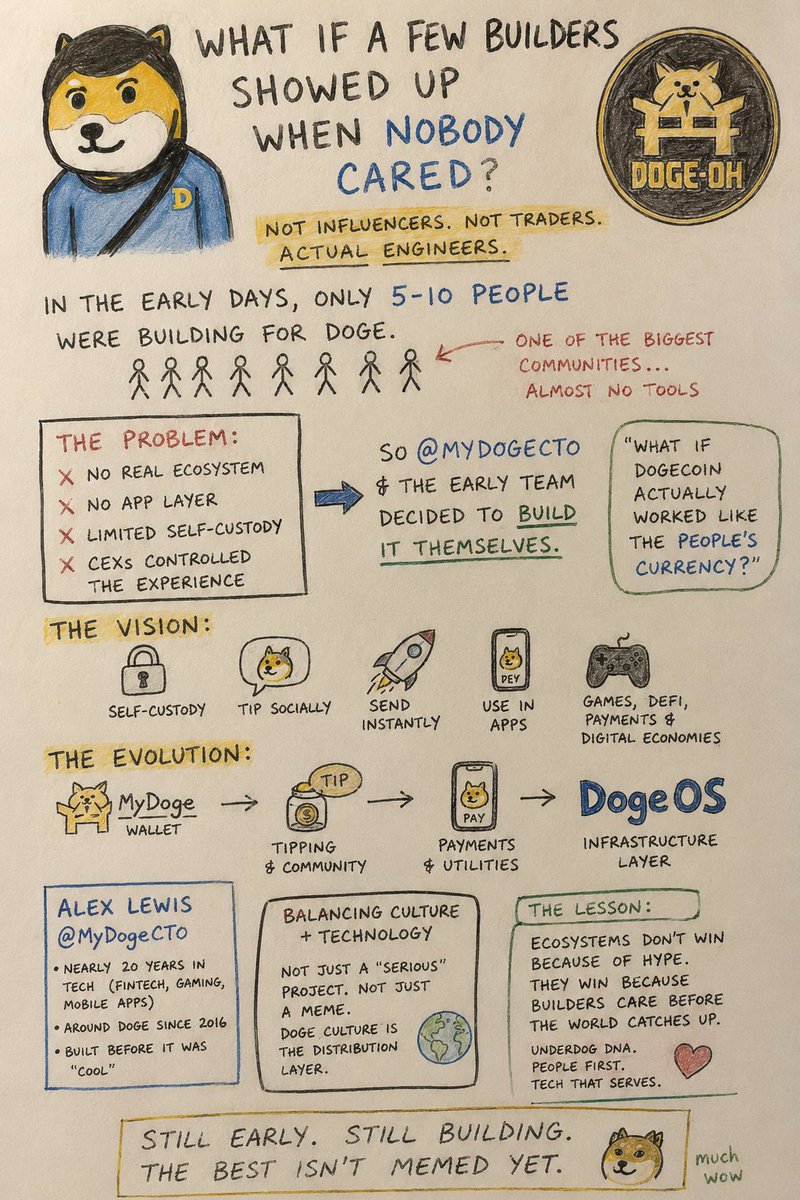 WHAT IF A FEW BUILDERS
SHOWED UP
WHEN NOBODY
CARED?
D
DOGE-OH
NOT INFLUENCERS. NOT TRADERS.
ACTUAL ENGINEERS.
IN THE EARLY DAYS, ONLY 5-10 PEOPLE
WERE BUILDING FOR DOGE.
ONE OF THE BIGGEST
COMMUNITIES...
ALMOST NO TOOLS
THE PROBLEM:
X NO REAL ECOSYSTEM
X NO APP LAYER
X LIMITED SELF-CUSTODY
X CEXs CONTROLLED
THE EXPERIENCE
SO @MYDOGECTO
& THE EARLY TEAM
DECIDED TO BUILD
IT THEMSELVES.
"WHAT IF
DOGECOIN
ACTUALLY
WORKED LIKE
THE PEOPLE'S
CURRENCY?"
THE VISION:
SELF-CUSTODY
TIP SOCIALLY
SEND
INSTANTLY
PEY
USE IN
APPS
GAMES, DEFI,
PAYMENTS &
DIGITAL ECONOMIES
THE EVOLUTION:
MyDoge
WALLET
TIP
$
TIPPING
& COMMUNITY
PAY
PAYMENTS
& UTILITIES
DogeOS
INFRASTRUCTURE
LAYER
ALEX LEWIS
@MyDogeCTO
• NEARLY 20 YEARS IN
TECH (FINTECH, GAMING,
MOBILE APPS)
• AROUND DOGE SINCE 2016
• BUILT BEFORE IT WAS
"COOL"
BALANCING CULTURE
+ TECHNOLOGY
NOT JUST A "SERIOUS"
PROJECT. NOT JUST
A MEME.
DOGE CULTURE IS
THE DISTRIBUTION
LAYER.
THE LESSON:
ECOSYSTEMS DON'T WIN
BECAUSE OF HYPE.
THEY WIN BECAUSE
BUILDERS CARE BEFORE
THE WORLD CATCHES UP.
UNDERDOG DNA.
PEOPLE FIRST.
TECH THAT SERVES.
STILL EARLY. STILL BUILDING.
THE BEST ISN'T MEMED YET.
much
wow